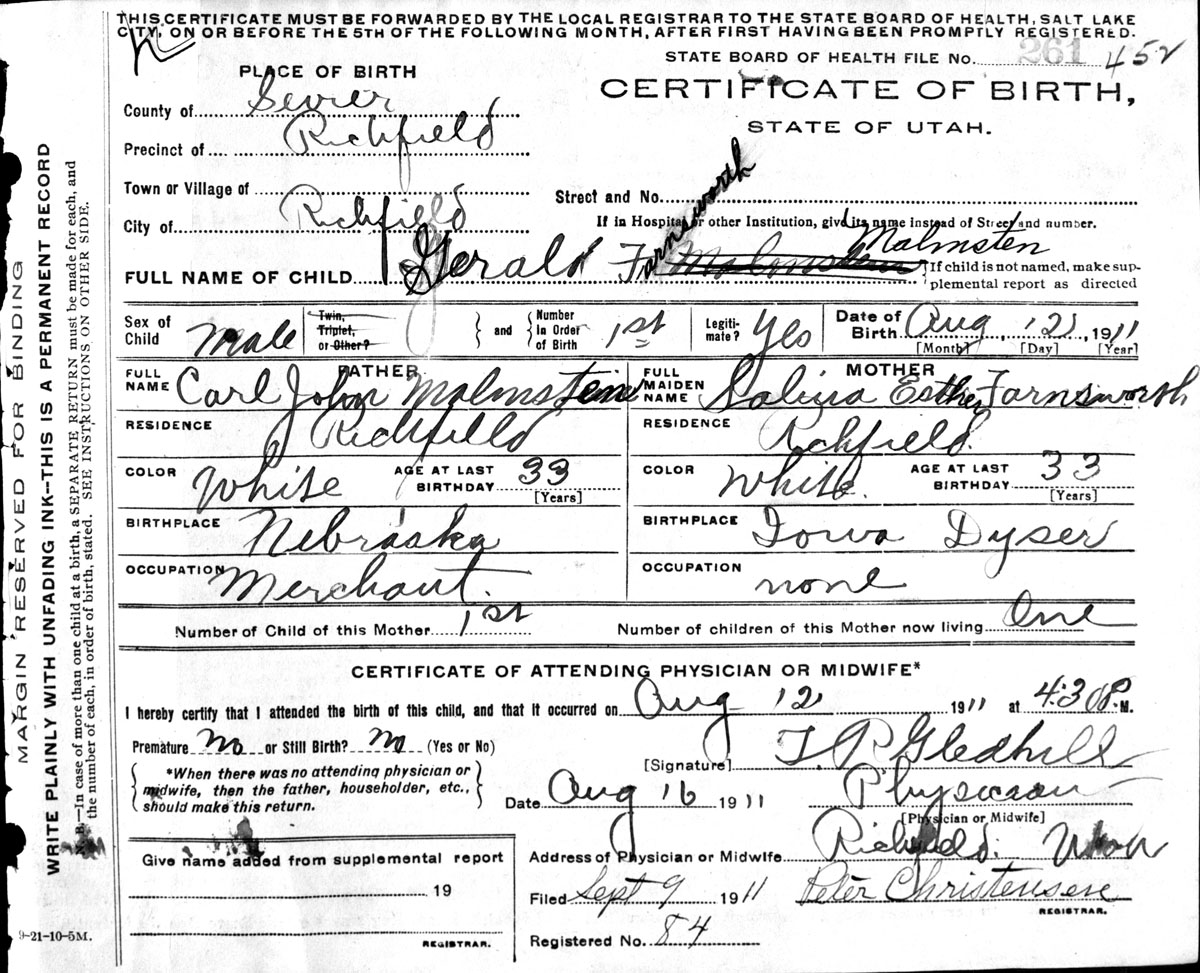 THIS CERTIFICATE MUST BE FORWARDED BY THE LOCAL REGISTRAR TO THE STATE BOARD OF HEALTH, SALT LAKE
CITY, ON OR BEFORE THE 5TH OF THE FOLLOWING MONTH, AFTER FIRST HAVING BEEN PROMPTLY REGISTERED.
STATE BOARD OF HEALTH FILE No. 261 452
PLACE OF BIRTH
CERTIFICATE OF BIRTH,
STATE OF UTAH.
County of Sevier
Precinct of Richfield
Town or Village of
Street and No.
City of Richfield
If in Hospital or other Institution, give its name instead of Street and number.
FULL NAME OF CHILD Gerald Farnsworth Malmsten
If child is not named, make sup-
plemental report as directed
Sex of Child Male Twin, Triplet, or Other? and Number In Order of Birth 1st Legiti-mate? Yes Date of Birth Aug 12, 1911
[Month] [Day] [Year]
FATHER MOTHER
FULL NAME Carl John Malmstein FULL MAIDEN NAME Salina Esther Farnsworth
RESIDENCE Richfield RESIDENCE Richfield
COLOR White AGE AT LAST BIRTHDAY 33 [Years] COLOR White AGE AT LAST BIRTHDAY 33 [Years]
BIRTHPLACE Nebraska BIRTHPLACE Iowa Dyser
OCCUPATION Merchant. OCCUPATION none
Number of Child of this Mother 1st Number of children of this Mother now living One
CERTIFICATE OF ATTENDING PHYSICIAN OR MIDWIFE*
I hereby certify that I attended the birth of this child, and that it occurred on Aug 12 1911 at 4:30 P. M.
Premature No or Still Birth? No (Yes or No)
[Signature] T. P. Gledhill
*When there was no attending physician or
midwife, then the father, householder, etc.,
should make this return.
Date Aug 16 1911 Physician
[Physician or Midwife]
Address of Physician or Midwife Richfield. Utah
Give name added from supplemental report
19
REGISTRAR.
Filed Sept 9 1911 Peter Christensen
REGISTRAR.
Registered No. 84
9-21-10-5M.
MARGIN RESERVED FOR BINDING
WRITE PLAINLY WITH UNFADING INK—THIS IS A PERMANENT RECORD
N. B.—In case of more than one child at a birth, a SEPARATE RETURN must be made for each, and
the number of each, in order of birth, stated. SEE INSTRUCTIONS ON OTHER SIDE.